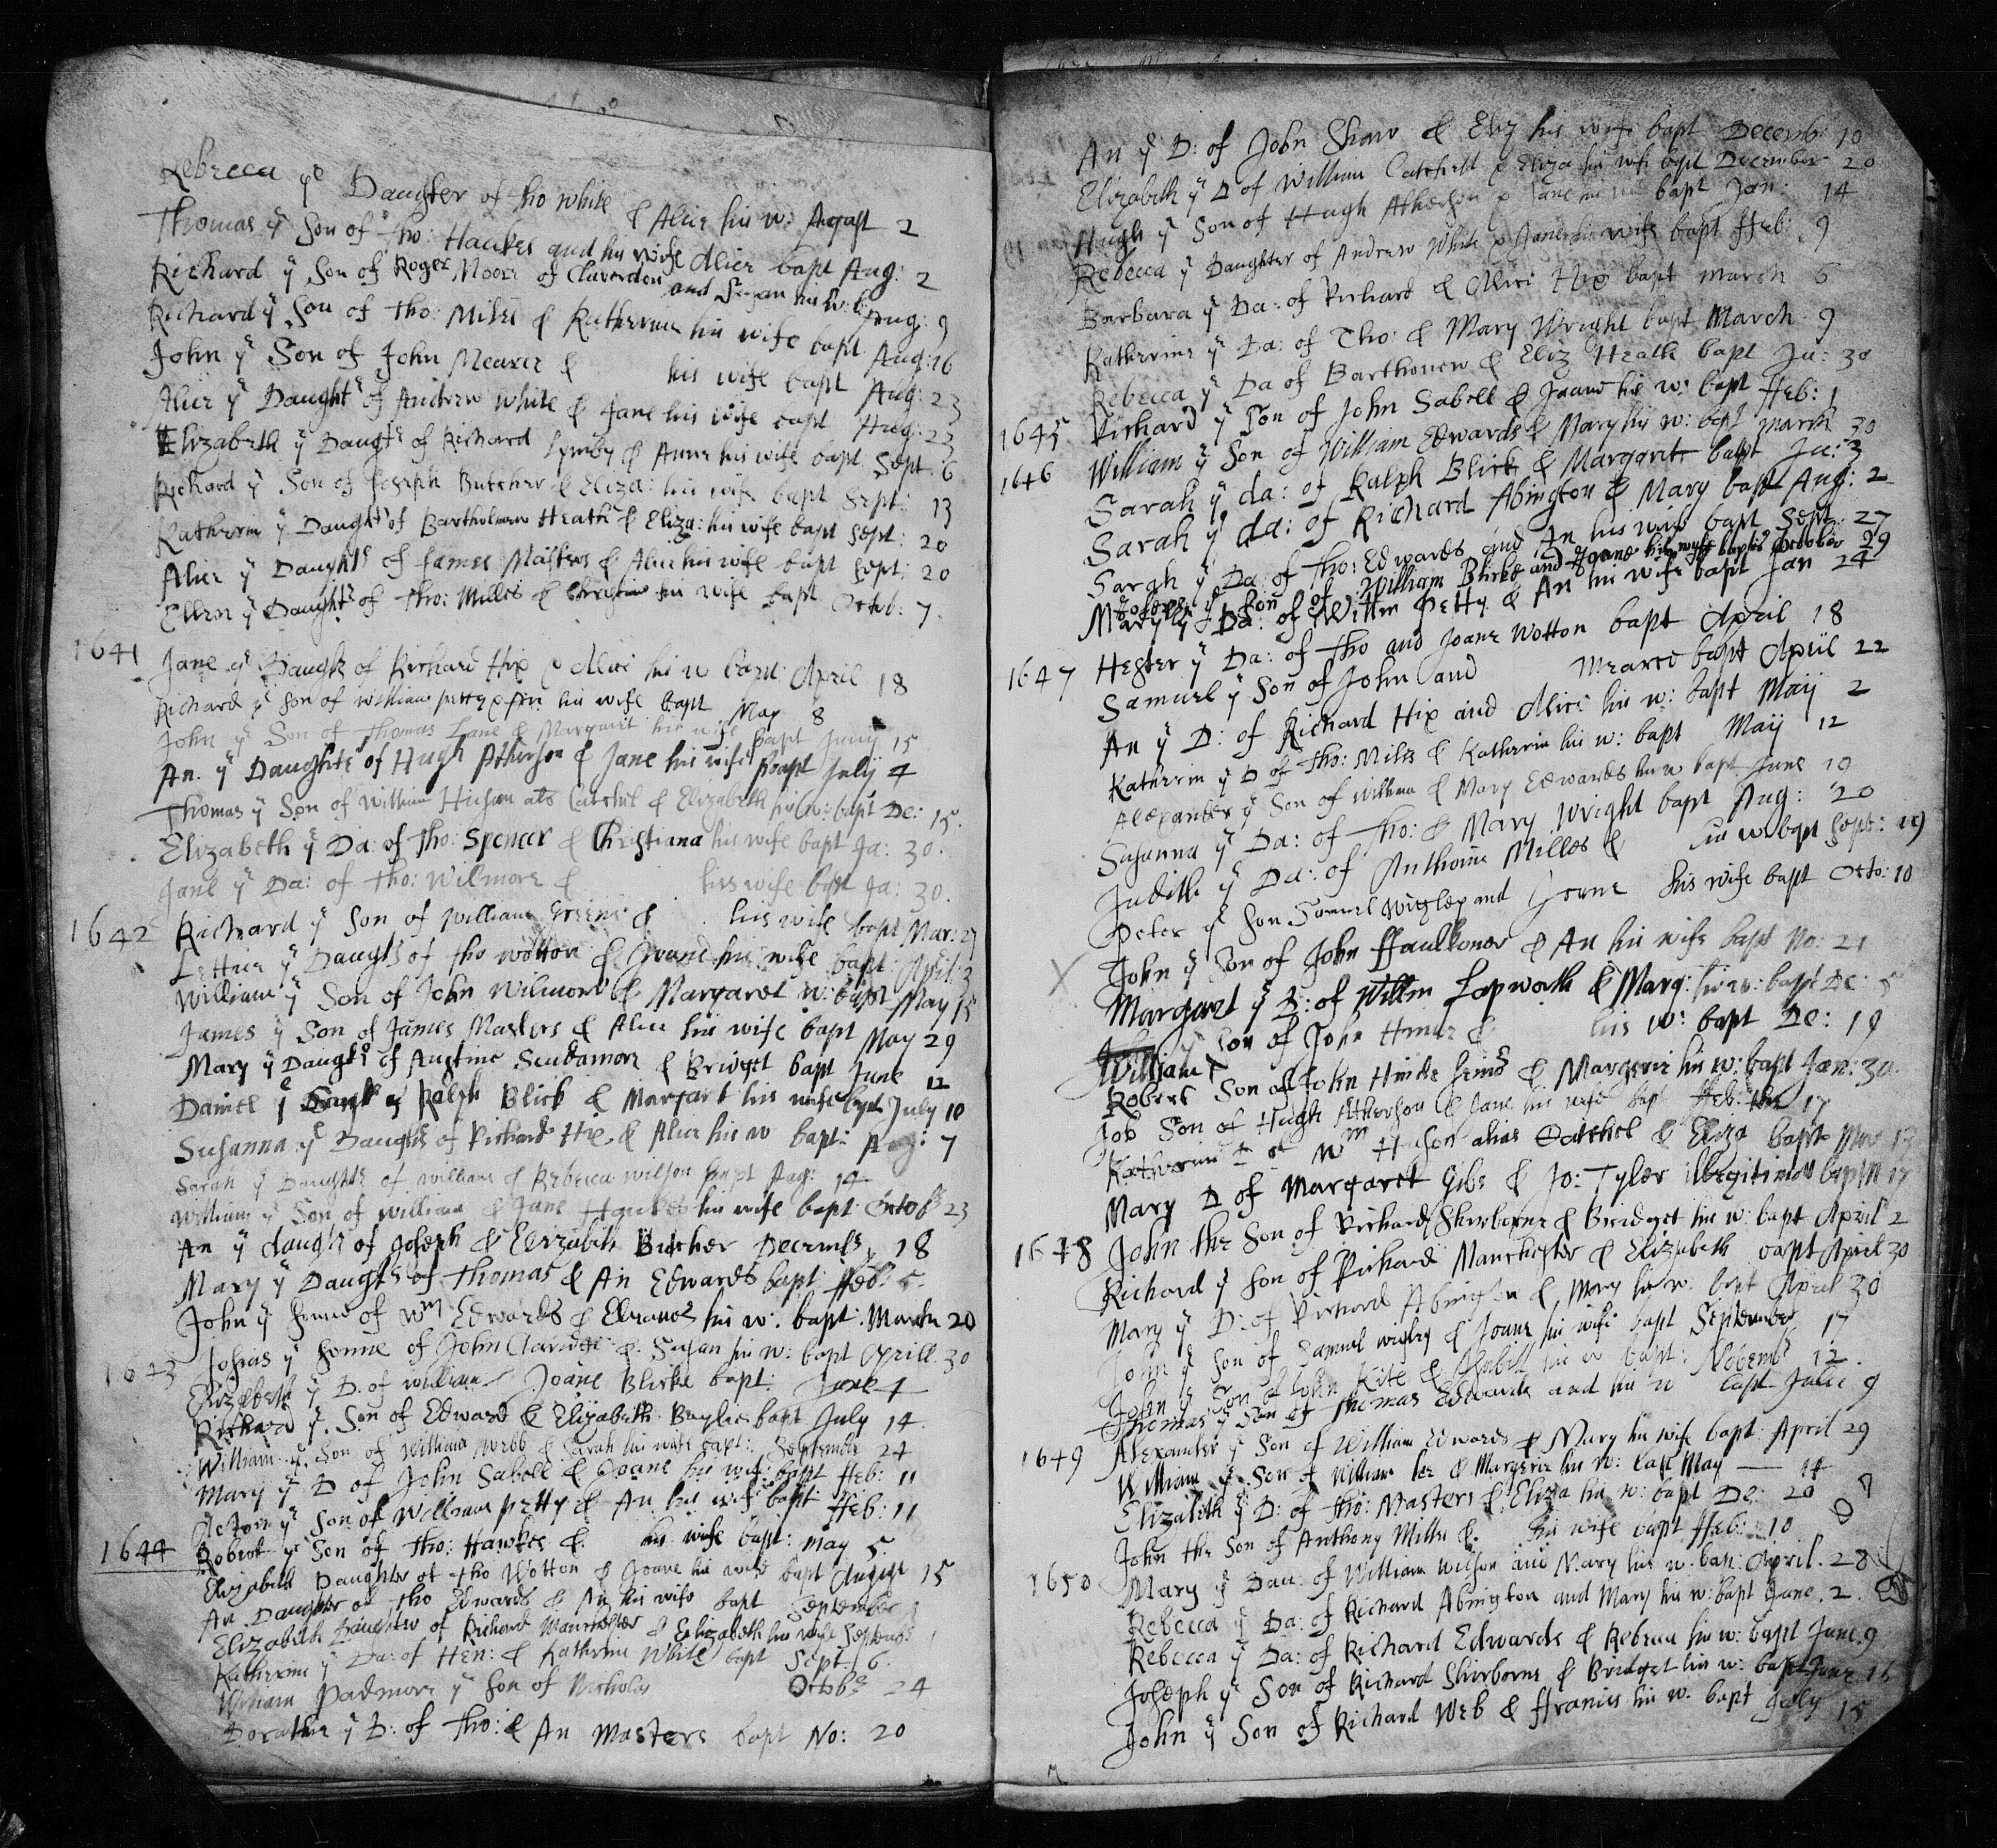 Rebecca ye Daughter of tho white & Alice his w: August 2
Thomas ye Son of Tho: Hawkes and his wife Alice bapt Aug: 2
Richard ye Son of Roger Moore of Claverdon and Susan his w: b: Aug: 9
Richard ye Son of Tho: Miles & Katherine his wife bapt Aug: 16
John ye Son of John Mearce & his wife bapt Aug: 23
Alice ye Daughtr of Andrew White & Jane his wife bapt Aug: 23
Elizabeth ye Daughtr of Richard Symby & Anne his wife bapt Sept: 6
Richard ye Son of Joseph Butcher & Eliza: his wife bapt Sept: 13
Katherin ye Daughtr of Bartholmew Heath & Eliza: his wife bapt Sept: 20
Alice ye Daughtr of James Masters & Alice his wife bapt Sept: 20
Ellen ye Daughtr of Tho: Milles & Christian his wife bapt Octob: 7
1641 Jane ye Daughtr of Richard Hix & Alice his w bapt: April 18
Richard ye Son of William petty & An his wife bapt May 8
John ye Son of Thomas Lane & Margaret his wife bapt Juny 15
An. ye Daughter of Hugh Atherson & Jane his wife bapt July 4
Thomas ye Son of William Hieson als Catchel & Elizabeth his w: bapt De: 15.
Elizabeth ye Da: of Tho: Spencer & Christiana his wife bapt Ja: 30.
Jane ye Da: of Tho: Wilmore & his wife bapt Ja: 30.
1642 Richard ye Son of William Greene & his wife bapt Mar: 27
Lettice ye Daughtr of tho Wotton & Joane his wife bapt: April: 3
William ye Son of John Wilmore & Margaret w: bapt May 15
James ye Son of James Masters & Alice his wife bapt May 29
Mary ye Daughtr of Austine Scudamore & Bridget bapt June 12
Daniel ye of Ralph Blick & Margaret his wife bapt July 10
Susanna ye Daughtr of Richard Hix & Alice his w bapt: Aug: 7
Sarah ye Daughtr of William & Rebecca Wilson bapt Aug: 14
William ye Son of William & Jane Hawkes his wife bapt Octob 23
An ye daughtr of Joseph & Elizabeth Butcher Decembr 18
Mary ye Daughtr of Thomas & An Edwards bapt: ffeb: 5.
John ye sonne of Wm Edwards & Eleanor his w: bapt: March 20
1643 Josias ye sonne of John Claridge & Susan his w: bapt Aprill 30
Elizabeth ye D. of William Joane Blicke bapt: June 4
Richard ye. Son of Edward & Elizabeth Baylie bapt July 14.
William ye. Son of William Webb & Sarah his wife bapt: September 24
Mary ye D of John Sabell & Joane his wife bapt ffeb: 11
ye Son of William petty & An his wife bapt ffeb: 11
1644 Robert ye Son of Tho: Hawkes & his wife bapt: may 5
Elizabeth Daughter of tho Wotton & Joane his wife bapt August 15
An Daughter of tho Edwards & An his wife bapt September
Elizabeth Daughter of Richard Manchester & Elizabeth his wife Septemb
Katherine ye Da: of Hen: & Katherine White bapt Sept: 6.
William Padmore ye Son of Nicholas Octobr 24
Dorathie ye D: of Tho: & An Masters bapt No: 20
An ye D: of John Shaw & Eliz his wife bapt Decemb: 10
Elizabeth ye D of William Catchell & Eliza his wife bapt December 20
Hugh ye Son of Hugh Atherson & Jane his w bapt Jan: 14
Rebecca ye Daughter of Andrew White & Jane his wife bapt ffeb: 9
Barbara ye Da: of Richard & Alice Hix bapt March 6
Katherine ye Da: of Tho: & Mary Wright bapt March 9
Rebecca ye Da of Bartholomew & Eliz Heath bapt Ja: 30
1645 Richard ye Son of John Sabell & Joane his w: bapt ffeb: 1
1646 William ye Son of William Edwards & Mary his w: bapt march 30
Sarah ye da: of Ralph Blick & Margaret bapt Ju: 3
Sarah ye da: of Richard Abington & Mary bapt Aug: 2
Sarah ye Da: of Tho: Edwards and An his wife bapt Sept: 27
ye Son of William Blicke and Joane his wife baptis October 29
Mary ye Da: of Willm Petty & An his wife bapt Jan 24
1647 Hester ye Da: of Tho and Joane Wotton bapt April 18
Samuel ye Son of John and Mearce bapt April 22
An ye D: of Richard Hix and Alice his w: bapt Maij 2
Katherin ye D of Tho: Miles & Katherin his w: bapt Maij 12
Alexander ye Son of William & Mary Edwards his w bapt June 19
Susanna ye Da: of Tho: & Mary Wright bapt Aug: 20
Judith ye Da: of Anthonie Milles & his w: bapt Sept: 19
Peter ye Son Samuel Wigley and Joane his wife bapt Octo: 10
X John ye Son of John ffaulkoner & An his wife bapt No: 21
Margaret ye D: of Willm Lapworth & Marg: his w: bapt De: 5
William ye Son of John Hiner & his w: bapt De: 19
Robert Son of John Hinde & Margerie his w: bapt Jan: 30.
Job Son of Hugh Atherson & Jane his wife bapt ffeb: the 17
Katherin D of Wm Hieson alias Catchel & Eliza bapt Mar 13
Mary D of Margaret Gibs & Jo: Tyler illegitimat bapt M 17
1648 John the Son of Richard Shirborne & Bridget his w: bapt April 2
Richard ye Son of Richard Manchester & Elizabeth bapt April 30
Mary ye D: of Richard Abington & Mary his w. bapt April 30
John ye Son of Samuel Wigley & Joane his wife bapt September 17
John ye Son of John Kite & Isabell his w bapt: Novembr 12.
Thomas ye Son of Thomas Edwards and his w bapt Julie 9
1649 Alexander ye Son of William Edwards & Mary his wife bapt: April 29
William ye Son of William & Margerie his w: bapt May — 14
Elizabeth ye D: of Tho: Masters & Eliza his w: bapt De: 20
John the Son of Anthony Milles & his wife bapt ffeb: 10
1650 Mary ye Dau: of William Wilson and Mary his w. bap: April. 28
Rebecca ye Da: of Richard Abington and Mary his w: bapt June. 2.
Rebecca ye Da: of Richard Edwards & Rebecca his w: bapt June. 9
Joseph ye Son of Richard Shirborne & Bridget his w: bapt June 16
John ye Son of Richard Web & ffrances his w. bapt July 15